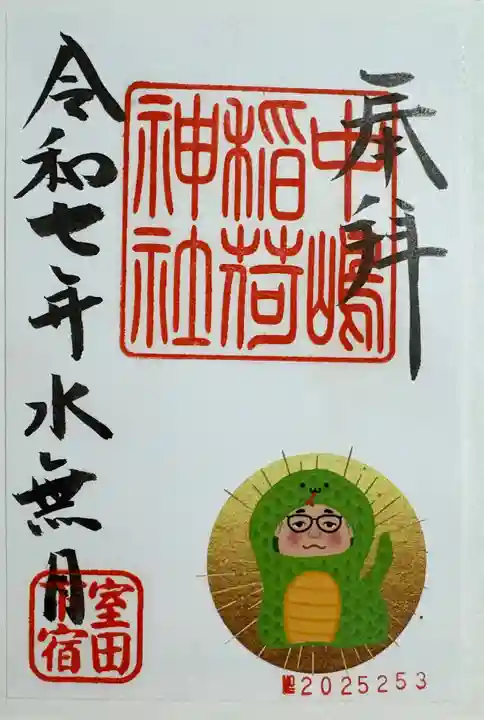 奉拝
中嶋
稲荷
神社
令和七年水無月
室田
宿
№2025253